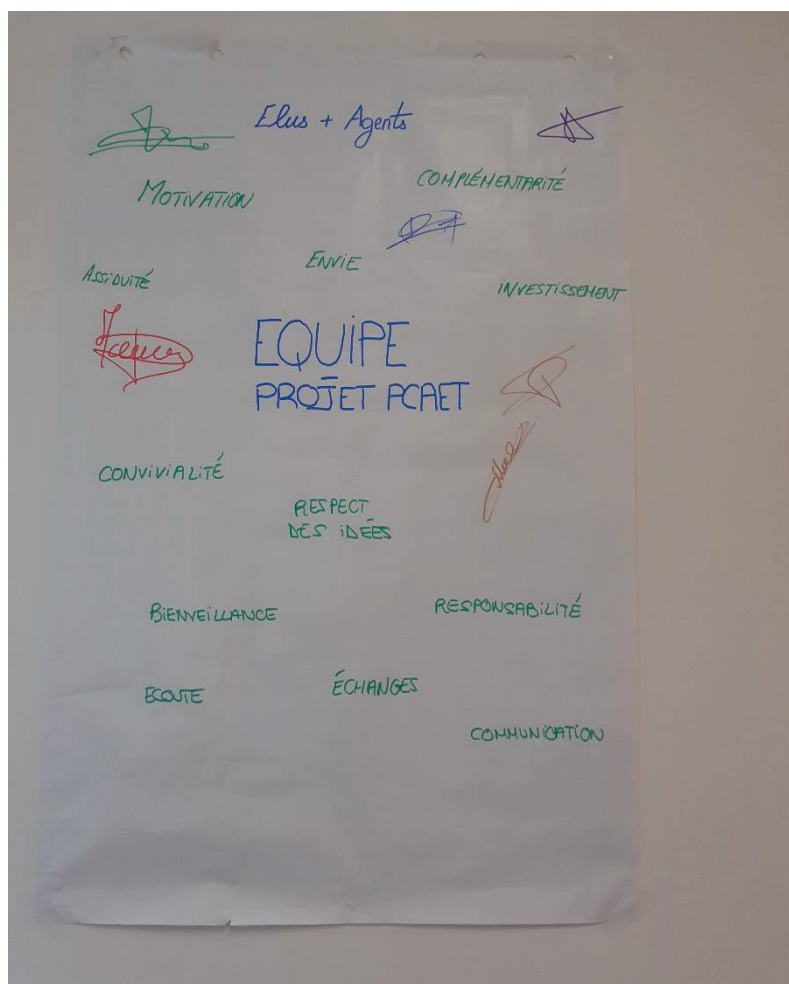 Elus + Agents
COMPLÉMENTARITÉ
MOTIVATION
ENVIE
ASSIDUITÉ
INVESTISSEMENT
EQUIPE
PROJET PCAET
CONVIVIALITÉ
RESPECT
DES IDÉES
BIENVEILLANCE
RESPONSABILITÉ
ECOUTE
ÉCHANGES
COMMUNICATION